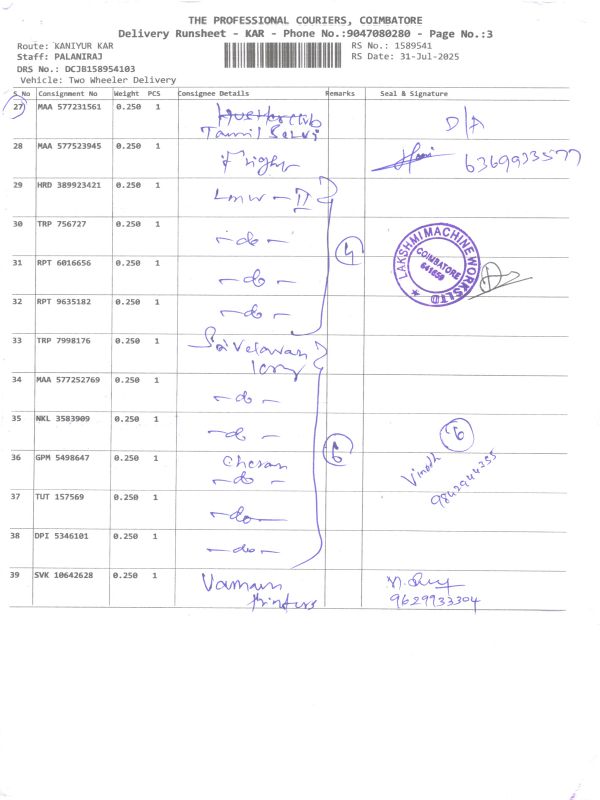 THE PROFESSIONAL COURIERS, COIMBATORE
Delivery Runsheet - KAR - Phone No.:9047080280 - Page No.:3
Route: KANIYUR KAR RS No.: 1589541
Staff: PALANIRAJ RS Date: 31-Jul-2025
DRS No.: DCJB158954103
Vehicle: Two Wheeler Delivery
S No Consignment No Weight PCS Consignee Details Remarks Seal & Signature
27 MAA 577231561 0.250 1 D/A
Tamil Selvi
28 MAA 577523945 0.250 1 6369933577
29 HRD 389923421 0.250 1 LMW - II
30 TRP 756727 0.250 1 - do -
31 RPT 6016656 0.250 1 - do - 4 LAKSHMI MACHINE WORKS LTD COIMBATORE 641659
32 RPT 9635182 0.250 1 - do -
33 TRP 7998176 0.250 1 Sri Velavan
34 MAA 577252769 0.250 1 - do -
35 NKL 3583909 0.250 1 - do - 6 6
36 GPM 5498647 0.250 1 Cheran Vinoth
- do - 9842944355
37 TUT 157569 0.250 1 - do -
38 DPI 5346101 0.250 1 - do -
39 SVK 10642628 0.250 1 Vamam
Printers 9629933304